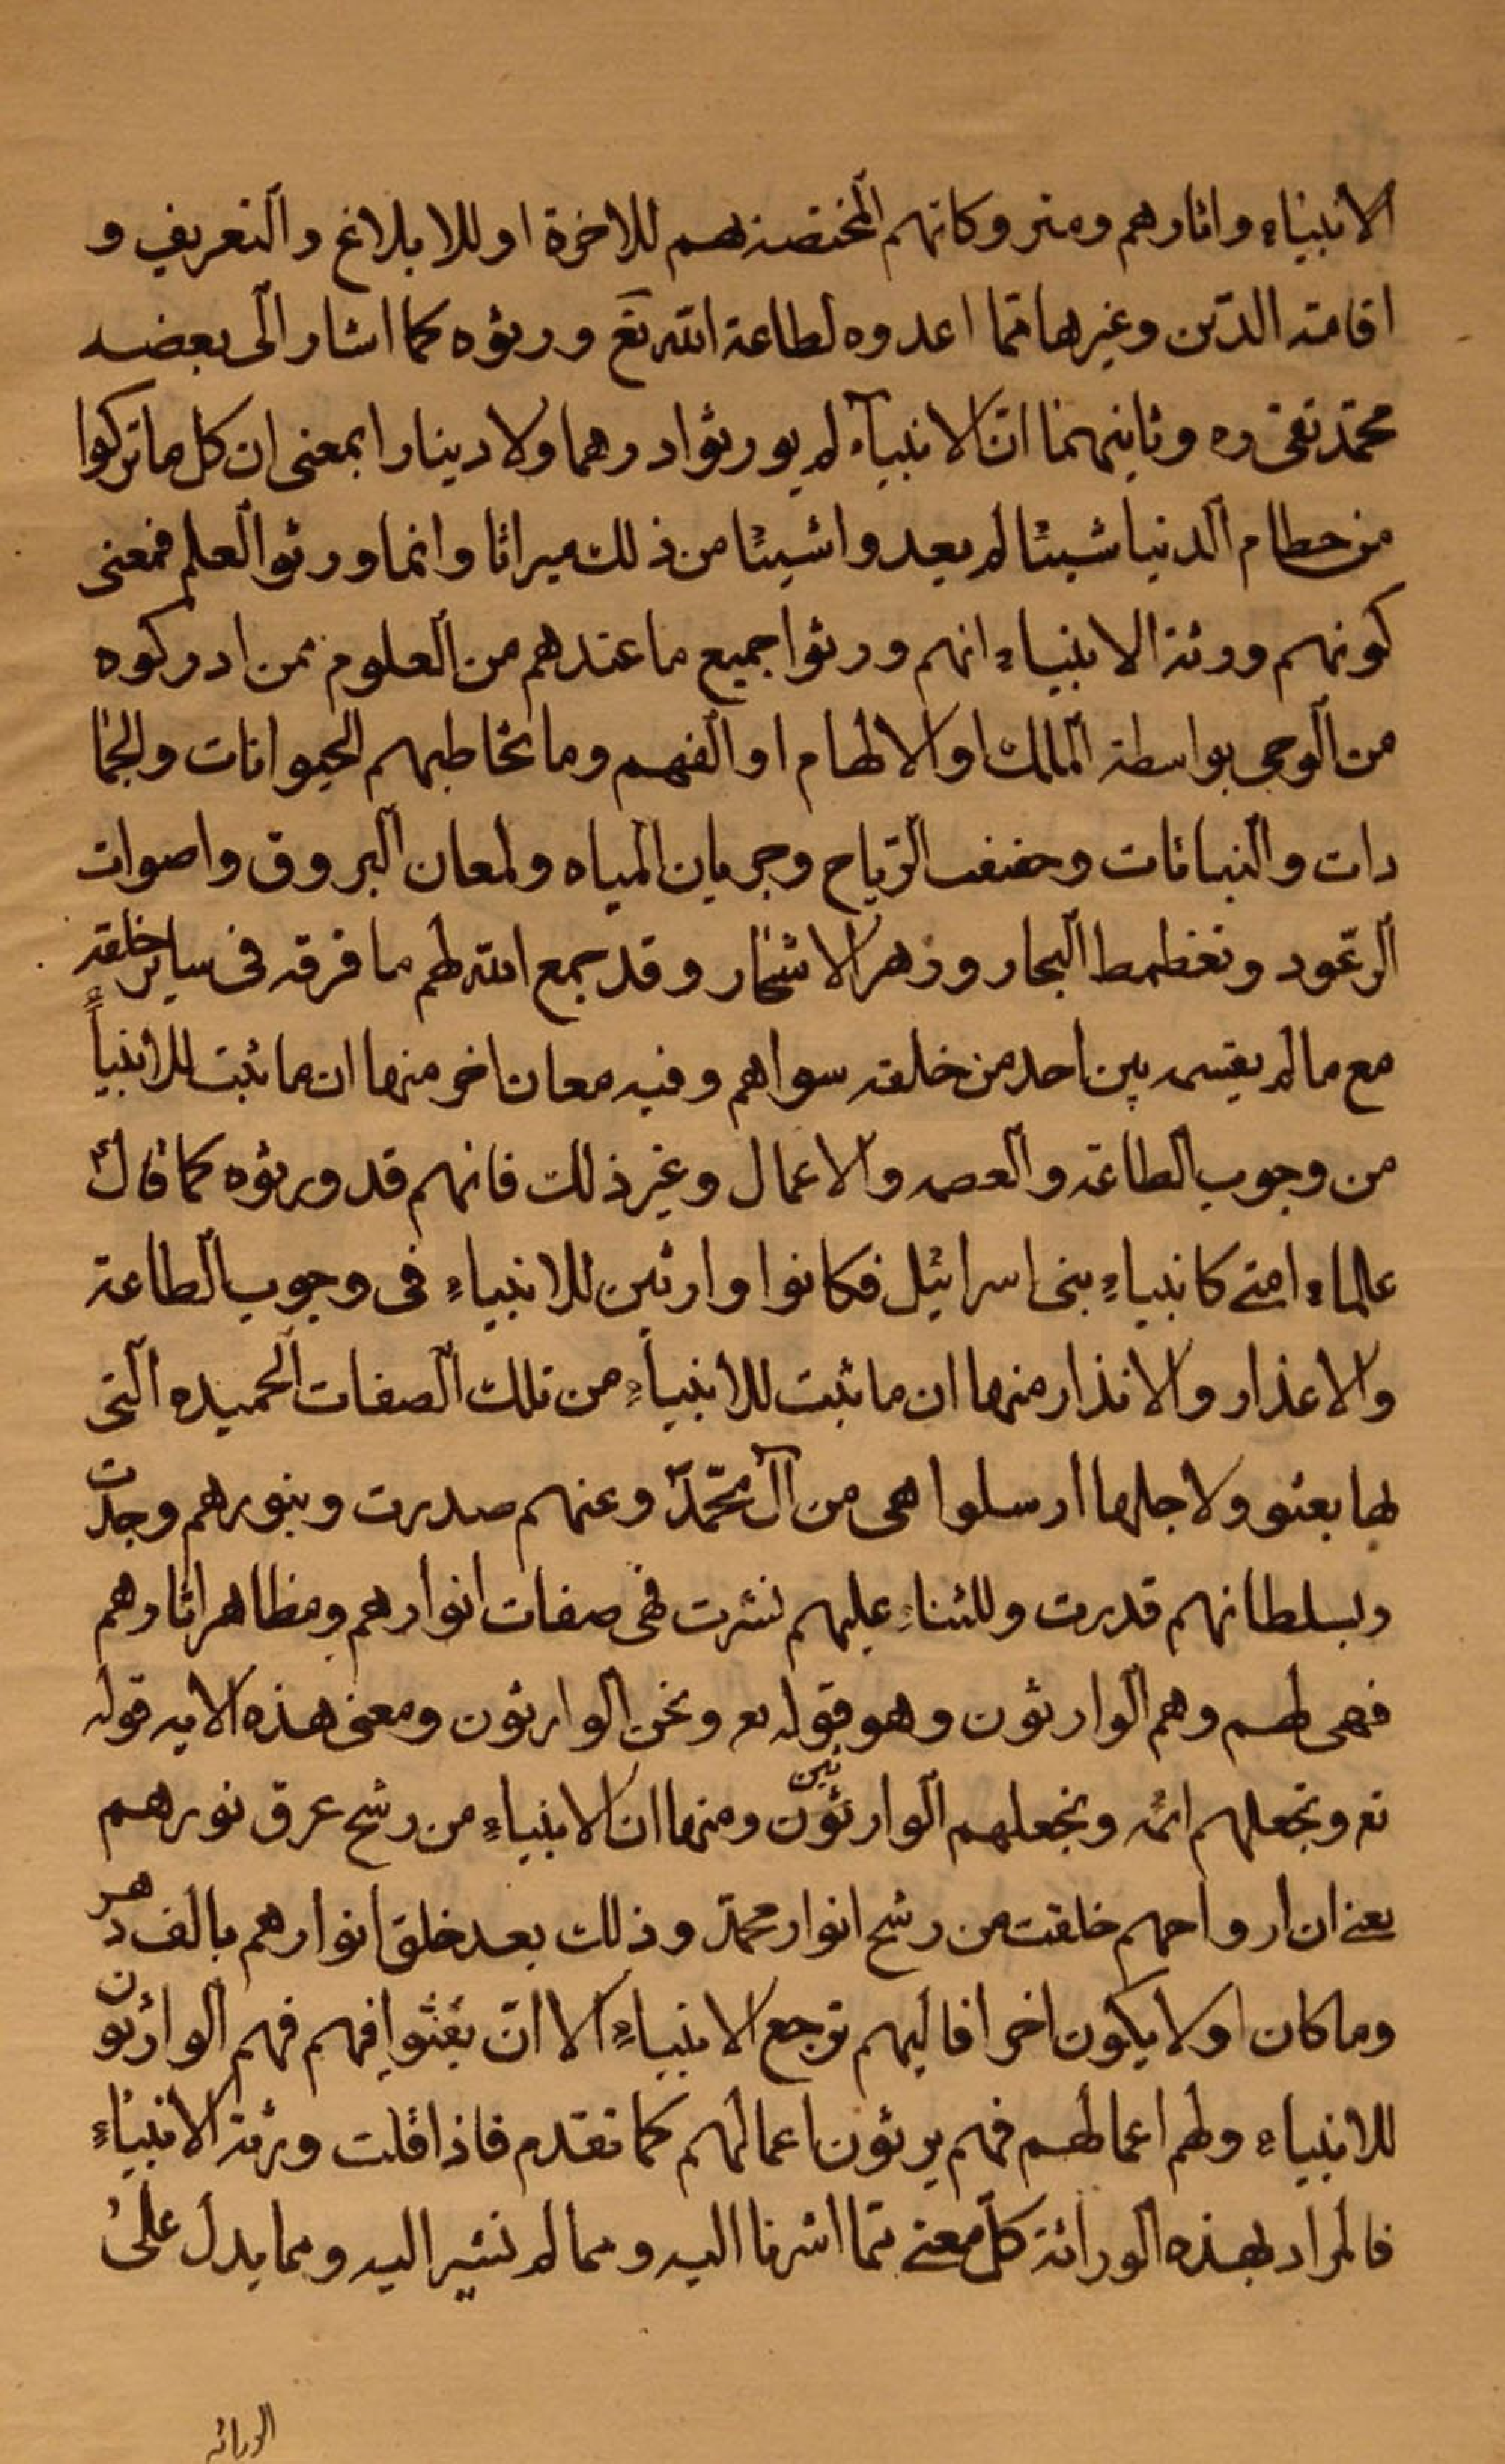 الانبياء واثارهم ومتروكاتهم المختصة بهم للاخرة او للابلاغ والتعريف و
اقامة الدّين وغيرها ممّا اعدوه لطاعة الله تع ورثوه كما اشار الى بعضه
محمّد تقى ره وثانيهما انّ الانبيآء لم يورثوا درهما ولا دينارا بمعنى ان كل ما تركوا
من حطام الدنيا شيئا لم يعدوا شيئًا من ذلك ميراثا وانما ورثوا العلم فمعنى
كونهم ورثة الانبياء انهم ورثوا جميع ما عندهم من العلوم ممن ادركوه
من الوحى بواسطة الملك او الالهام او الفهم وما تخاطبهم الحيوانات والجما
دات والنباتات وحفيف الرّياح وجريان المياه ولمعان البروق واصوات
الرّعود وتغطمط البحار وزهر الاشجار وقد جمع الله لهم ما فرقه فى ساير خلقه
مع ما لم يقسمه بين احد من خلقه سواهم وفيه معان اخر منها ان ما ثبت للانبياءً
من وجوب الطاعة والعصمه والاعمال وغير ذلك فانهم قد ورثوه كما قال
علماء امتى كانبياء بنى اسرائيل فكانوا وارثين للانبياء فى وجوب الطاعة
والاعذار والانذار منها ان ما ثبت للانبياء من تلك الصفات الحميده التى
لها بعثوو لاجلها ارسلوا هى من آل محمّد وعنهم صدرت وبنورهم وجدت
وبسلطانهم قدرت وللثناء عليهم نشرت فهى صفات انوارهم ومظاهر اثارهم
فهى لهم وهم الوارثون وهو قوله تع ونحن الوارثون ومعنى هذه الايه قوله
تع ونجعلهم ائمه ونجعلهم الوارثون ثين ومنها ان الانبياء من رشح عرق نورهم
يعنى ان ارواحهم خلقت من رشح انوار محمّد وذلك بعد خلق انوارهم بالف دهر
وما كان اولا يكون اخرا فاليهم ترجع الانبياء الا انّ بقثوا فهم فهم الوارثون
للانبياء ولهم اعمالهم فهم يرثون اعمالهم كما تقدم فاذا قلت ورثة الانبياء
فالمراد بهذه الوراثة كلّ معنى ممّا اشرنا اليه ومما لم نشير اليه ومما يدل على
الوراثه